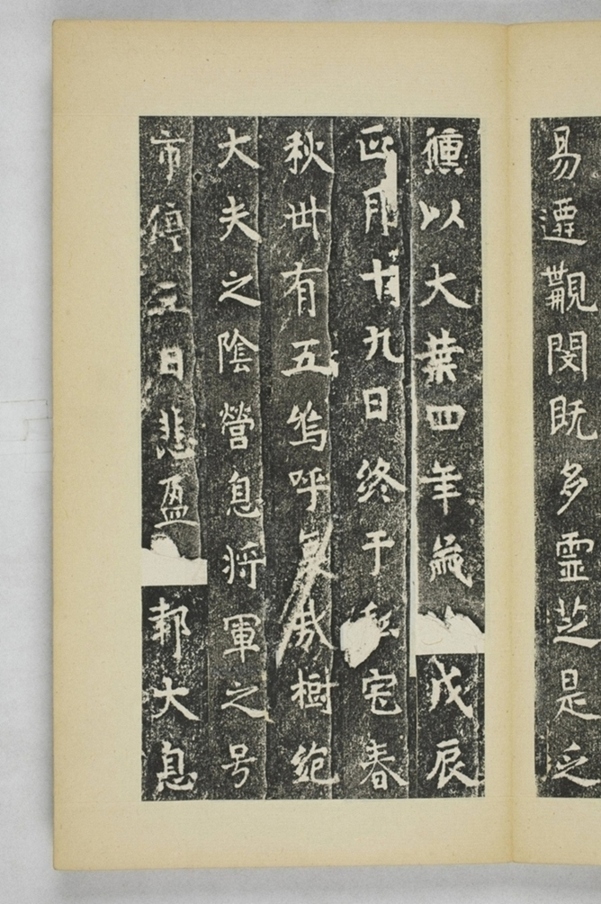 易遷覯閔既多靈芝是乏
以大葉四年歲戊辰
正月十九日终于私宅春
秋丗有五嗚呼哀哉樹絶
大夫之陰營息将軍之号
市停三日悲盈鄰大息